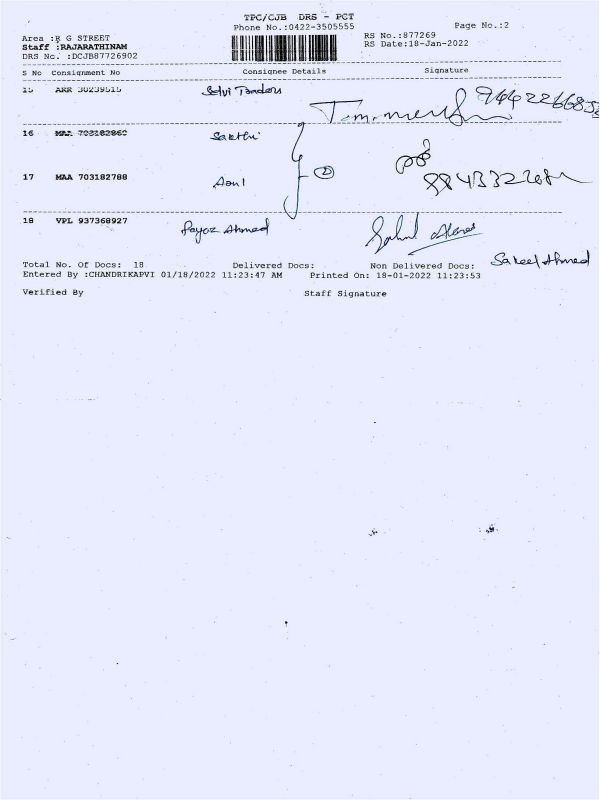 TPC/CJB DRS - PCT
Phone No.:0422-3505555
Page No.:2
Area :R G STREET
RS No.:877269
Staff :RAJARATHINAM
RS Date:18-Jan-2022
DRS No. :DCJB87726902
S No Consignment No Consignee Details Signature
15 ARR 30239515 Selvi Traders
16 MAA 703182860 Sakthi
17 MAA 703182788 2
18 VPL 937368927 Fayaz Ahmed
Sakeel Ahmed
Total No. Of Docs: 18 Delivered Docs: Non Delivered Docs:
Entered By :CHANDRIKAPVI 01/18/2022 11:23:47 AM Printed On: 18-01-2022 11:23:53
Verified By Staff Signature